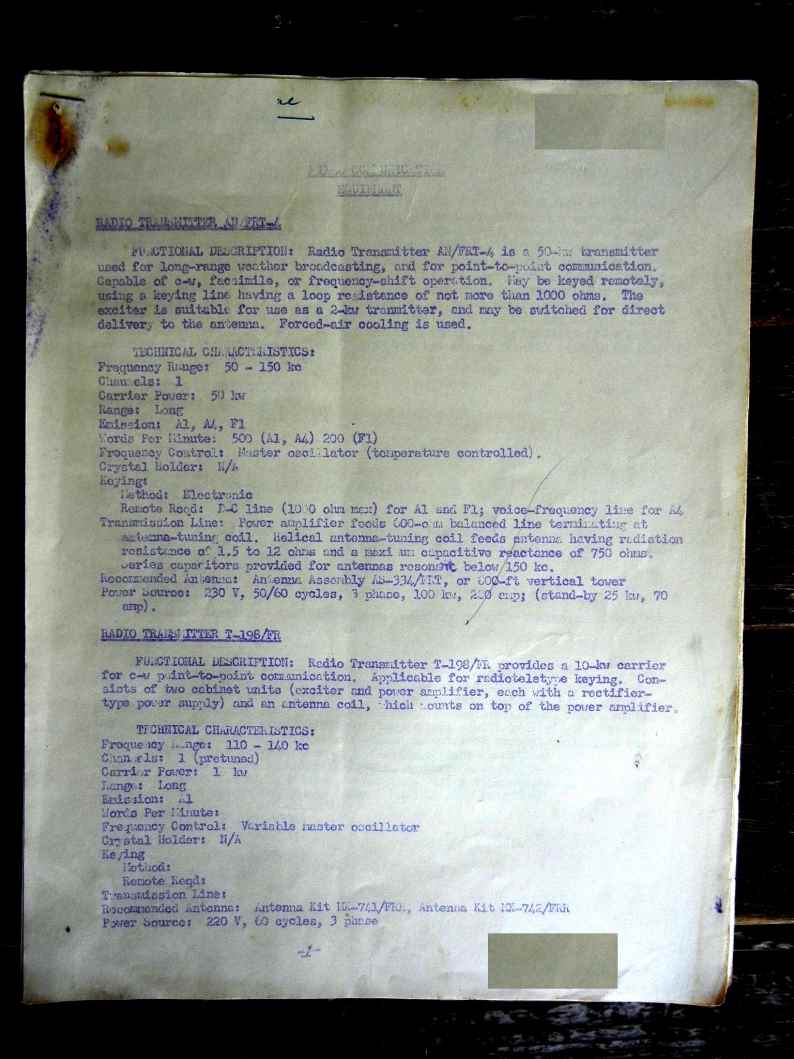 EQUIPMENT
RADIO TRANSMITTER AN/FRT-4
FUNCTIONAL DESCRIPTION: Radio Transmitter AN/FRT-4 is a 50-kw transmitter
used for long-range weather broadcasting, and for point-to-point communication.
Capable of c-w, facsimile, or frequency-shift operation. May be keyed remotely,
using a keying line having a loop resistance of not more than 1000 ohms. The
exciter is suitable for use as a 2-kw tranmitter, and may be switched for direct
delivery to the antenna. Forced-air cooling is used.
TECHNICAL CHARACTERISTICS:
Frequency Range: 50 - 150 kc
Channels: 1
Carrier Power: 50 kw
Range: Long
Emission: A1, A4, F1
Words Per Minute: 500 (A1, A4) 200 (F1)
Frequency Control: Master oscillator (temperature controlled).
Crystal Holder: N/A
Keying:
Method: Electronic
Remote Reqd: D-C line (1000 ohm max) for A1 and F1; voice-frequency line for A4
Transmission Line: Power amplifier feeds 600-ohm balanced line terminating at
antenna-tuning coil. Helical antenna-tuning coil feeds antenna having radiation
resistance of 1.5 to 12 ohms and a maximum capacitive reactance of 750 ohms.
Series capacitors provided for antennas resonant below 150 kc.
Recommended Antenna: Antenna Assembly AS-334/FRT, or 600-ft vertical tower
Power Source: 230 V, 50/60 cycles, 3 phase, 100 kw, 280 amp; (stand-by 25 kw, 70
amp).
RADIO TRANSMITTER T-198/FR
FUNCTIONAL DESCRIPTION: Radio Transmitter T-198/FR provides a 10-kw carrier
for c-w point-to-point communication. Applicable for radioteletype keying. Con-
sists of two cabinet units (exciter and power amplifier, each with a rectifier-
type power supply) and an antenna coil, which mounts on top of the power amplifier.
TECHNICAL CHARACTERISTICS:
Frequency Range: 110 - 140 kc
Channels: 1 (pretuned)
Carrier Power: 1 kw
Range: Long
Emission: A1
Words Per Minute:
Frequency Control: Variable master oscillator
Crystal Holder: N/A
Keying
Method:
Remote Reqd:
Transmission Line:
Recommended Antenna: Antenna Kit MK-741/FRR, Antenna Kit MK-742/FRR
Power Source: 220 V, 60 cycles, 3 phase
-1-